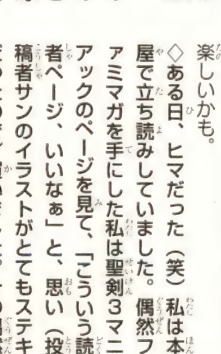 楽しいかも。
◇ある日、ヒマだった(笑)私は本
屋で立ち読みしていました。偶然フ
ァミマガを手にした私は聖剣3マニ
アックのページを見て、「こういう読
者ページ、いいなぁ」と、思い(投
稿者サンのイラストがとてもステキ